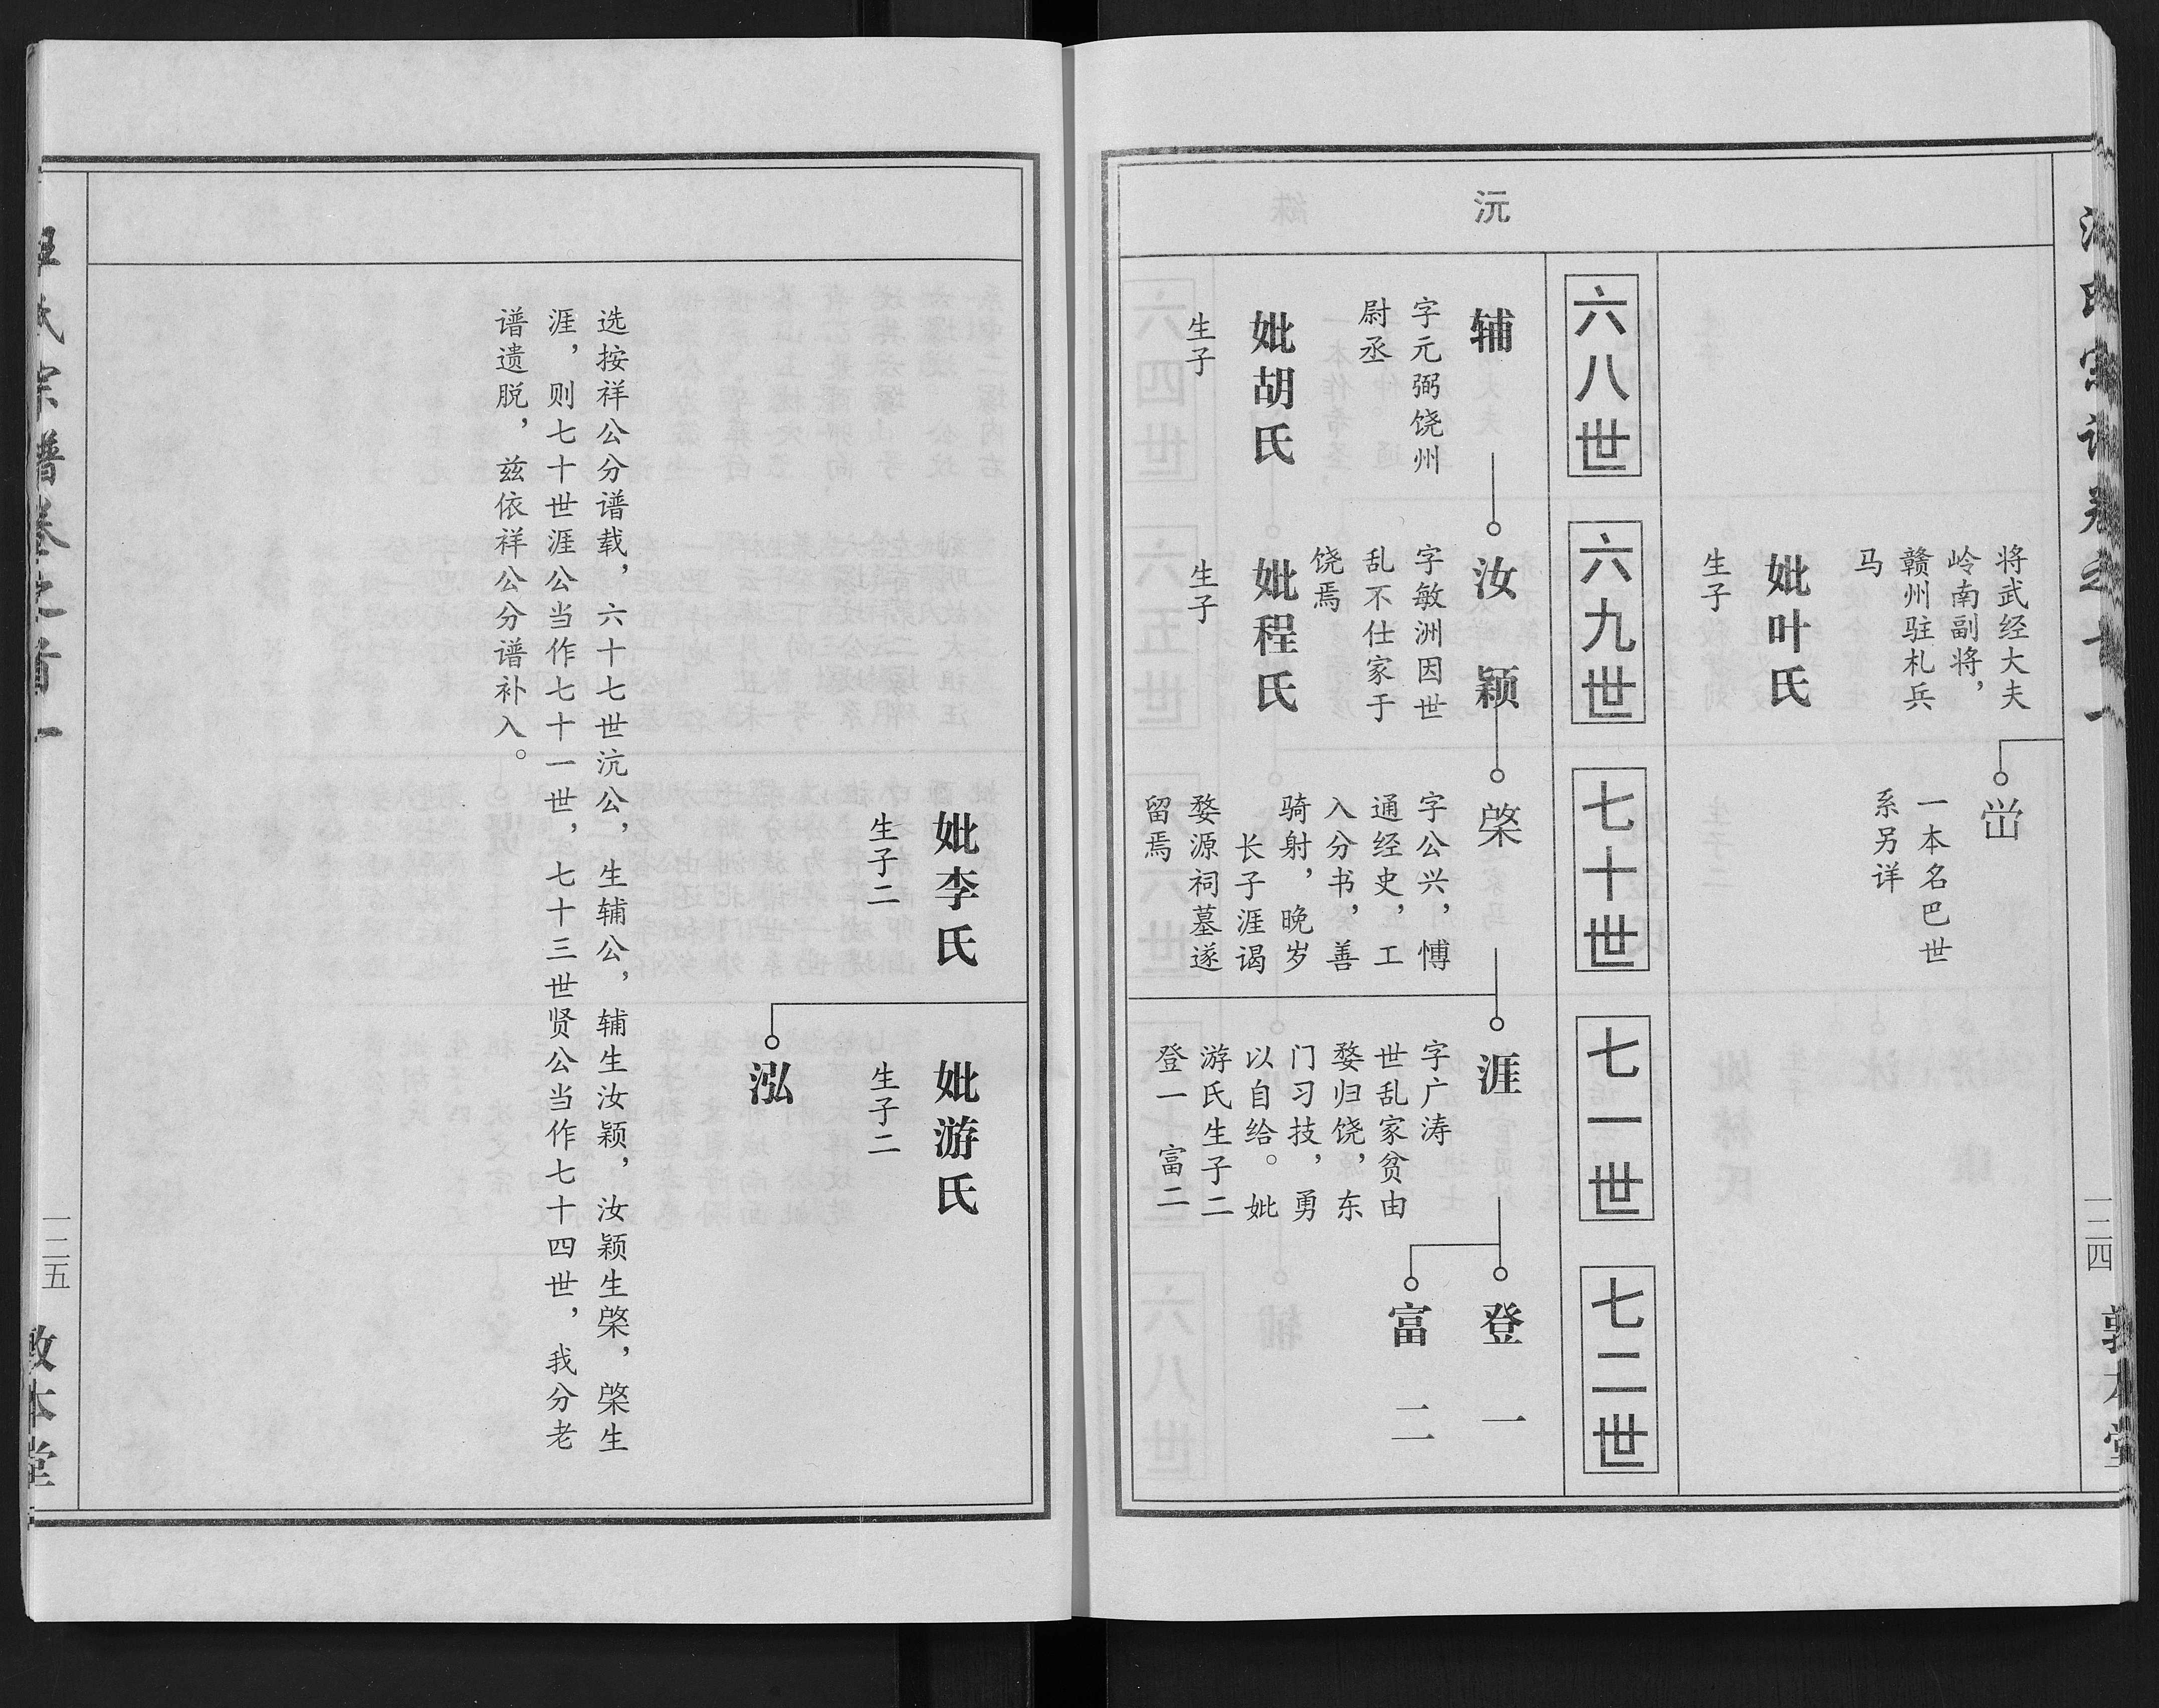 沅
将武经大夫
岭南副将，
赣州驻札兵
马
妣叶氏
生子
一本名巴世
系另详
六八世
六九世
七十世
七一世
七二世
辅
字元弼饶州
尉丞
妣胡氏
生子
汝颖
字敏洲因世
乱不仕家于
饶焉
妣程氏
生子
棨
字公兴，博
通经史，工
入分书，善
骑射，晚岁
长子涯谒
婺源祠墓遂
留焉
涯
字广涛
世乱家贫由
婺归饶，东
门习技，勇
以自给。妣
游氏生子二
登一 富二
登一
富二
一二四
敦本堂
妣李氏
生子二
妣游氏
生子二
泓
选按祥公分谱载，六十七世沆公，生辅公，辅生汝颖，汝颖生棨，棨生
涯，则七十世涯公当作七十一世，七十三世贤公当作七十四世，我分老
谱遗脱，兹依祥公分谱补入。
氏宗谱卷之首一
一二五
敦本堂